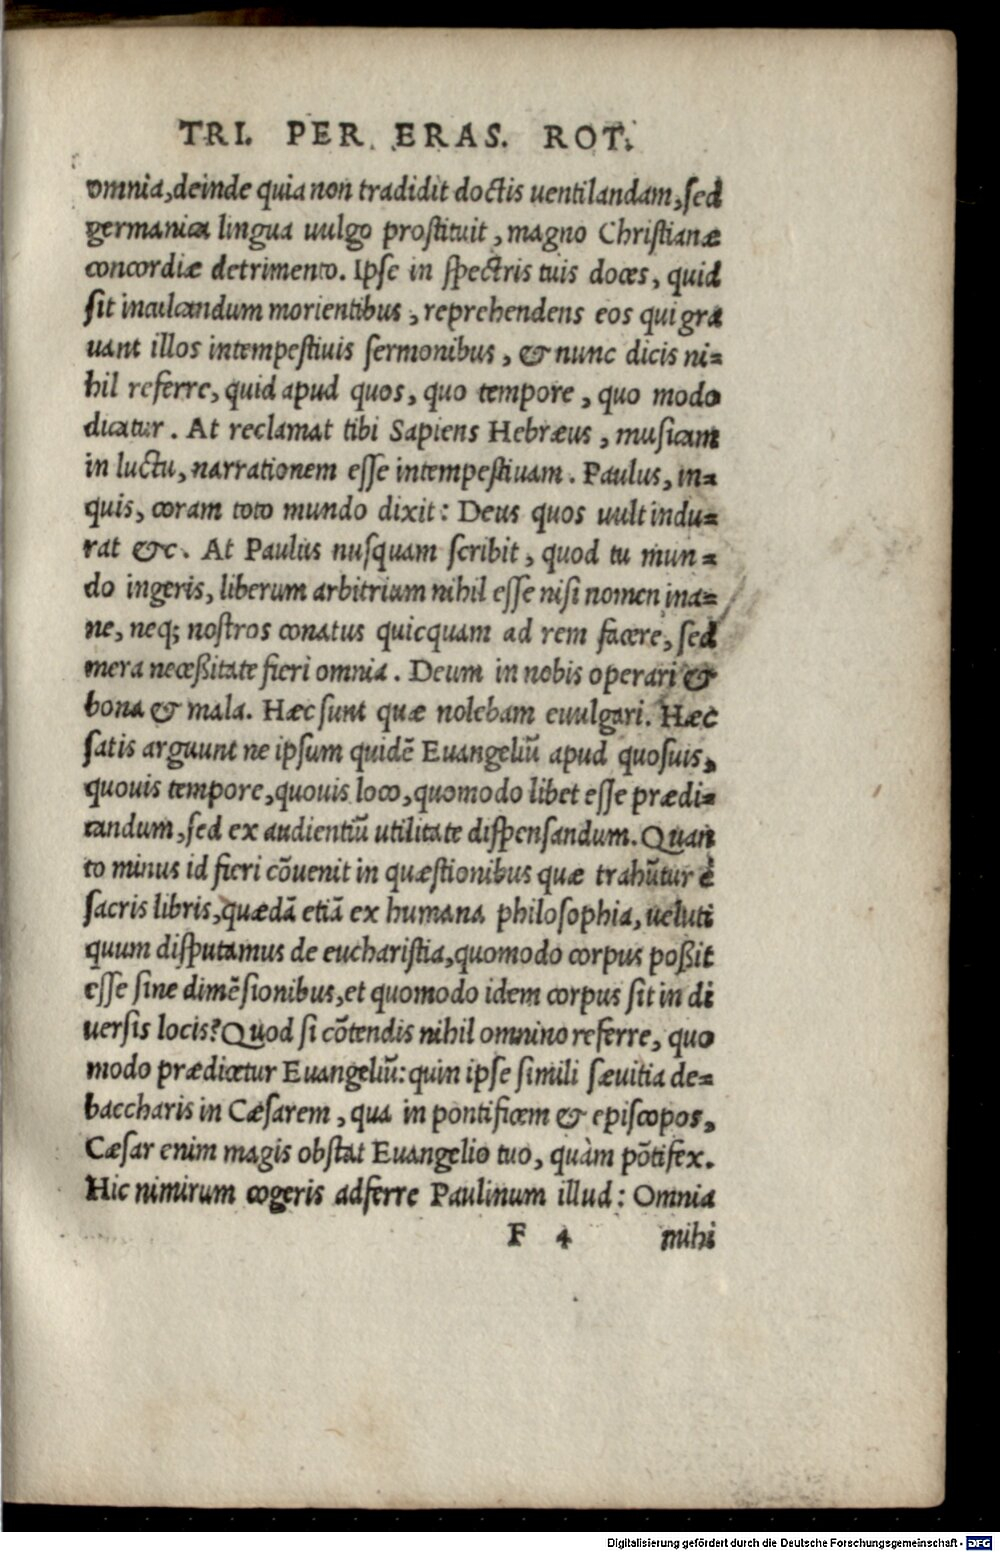 TRI. PER ERAS. ROT.
omnia, deinde quia non tradidit doctis uentilandam, sed
germanica lingua uulgo prostituit, magno Christianæ
concordiæ detrimento. Ipse in spectris tuis doces, quid
sit inculcandum morientibus, reprehendens eos qui gra
uant illos intempestiuis sermonibus, & nunc dicis ni=
hil referre, quid apud quos, quo tempore, quo modo
dicatur. At reclamat tibi Sapiens Hebræus, musicam
in luctu, narrationem esse intempestiuam. Paulus, in=
quis, coram toto mundo dixit: Deus quos uult indu=
rat &c. At Paulus nusquam scribit, quod tu mun=
do ingeris, liberum arbitrium nihil esse nisi nomen ina=
ne, neq; nostros conatus quicquam ad rem facere, sed
mera neceßitate fieri omnia. Deum in nobis operari &
bona & mala. Hæc sunt quæ nolebam euulgari. Hæc
satis arguunt ne ipsum quidẽ Euangeliũ apud quosuis,
quouis tempore, quouis loco, quomodo libet esse prædi=
candum, sed ex audientiũ utilitate dispensandum. Quan
to minus id fieri cõuenit in quæstionibus quæ trahũtur è
sacris libris, quædã etiã ex humana philosophia, ueluti
quum disputamus de eucharistia, quomodo corpus poßit
esse sine dimẽsionibus, et quomodo idem corpus sit in di
uersis locis? Quod si cõtendis nihil omnino referre, quo
modo prædicetur Euangeliũ: quin ipse simili sæuitia de=
baccharis in Cæsarem, qua in pontificem & episcopos,
Cæsar enim magis obstat Euangelio tuo, quàm põtifex.
Hic nimirum cogeris adferre Paulinum illud: Omnia
F 4 mihi
Digitalisierung gefördert durch die Deutsche Forschungsgemeinschaft - DFG